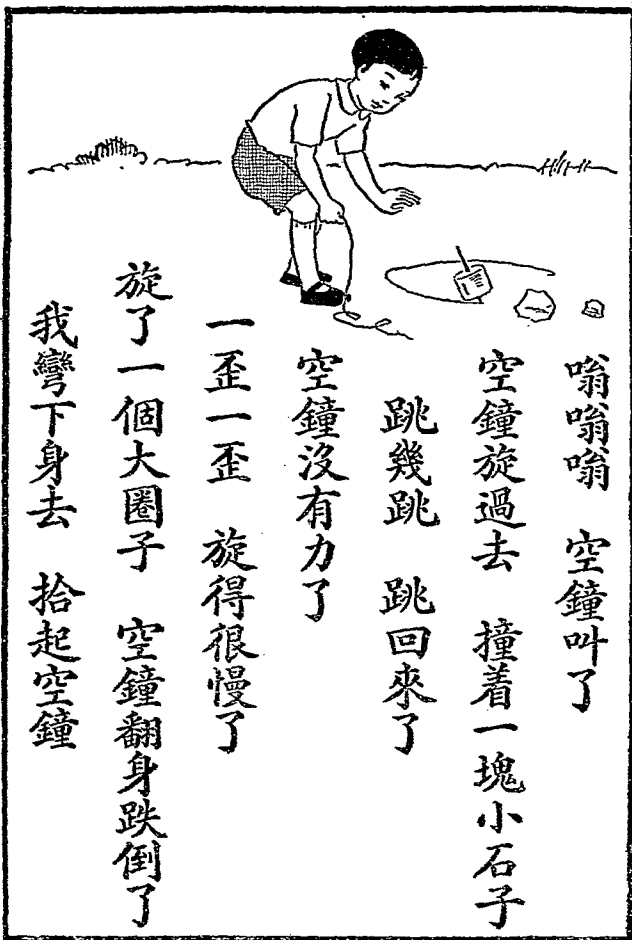 嗡嗡嗡　空鐘叫了
空鐘旋過去　撞着一塊小石子
跳幾跳　跳回來了
空鐘沒有力了
一歪一歪　旋得很慢了
旋了一個大圈子　空鐘翻身跌倒了
我彎下身去　拾起空鐘